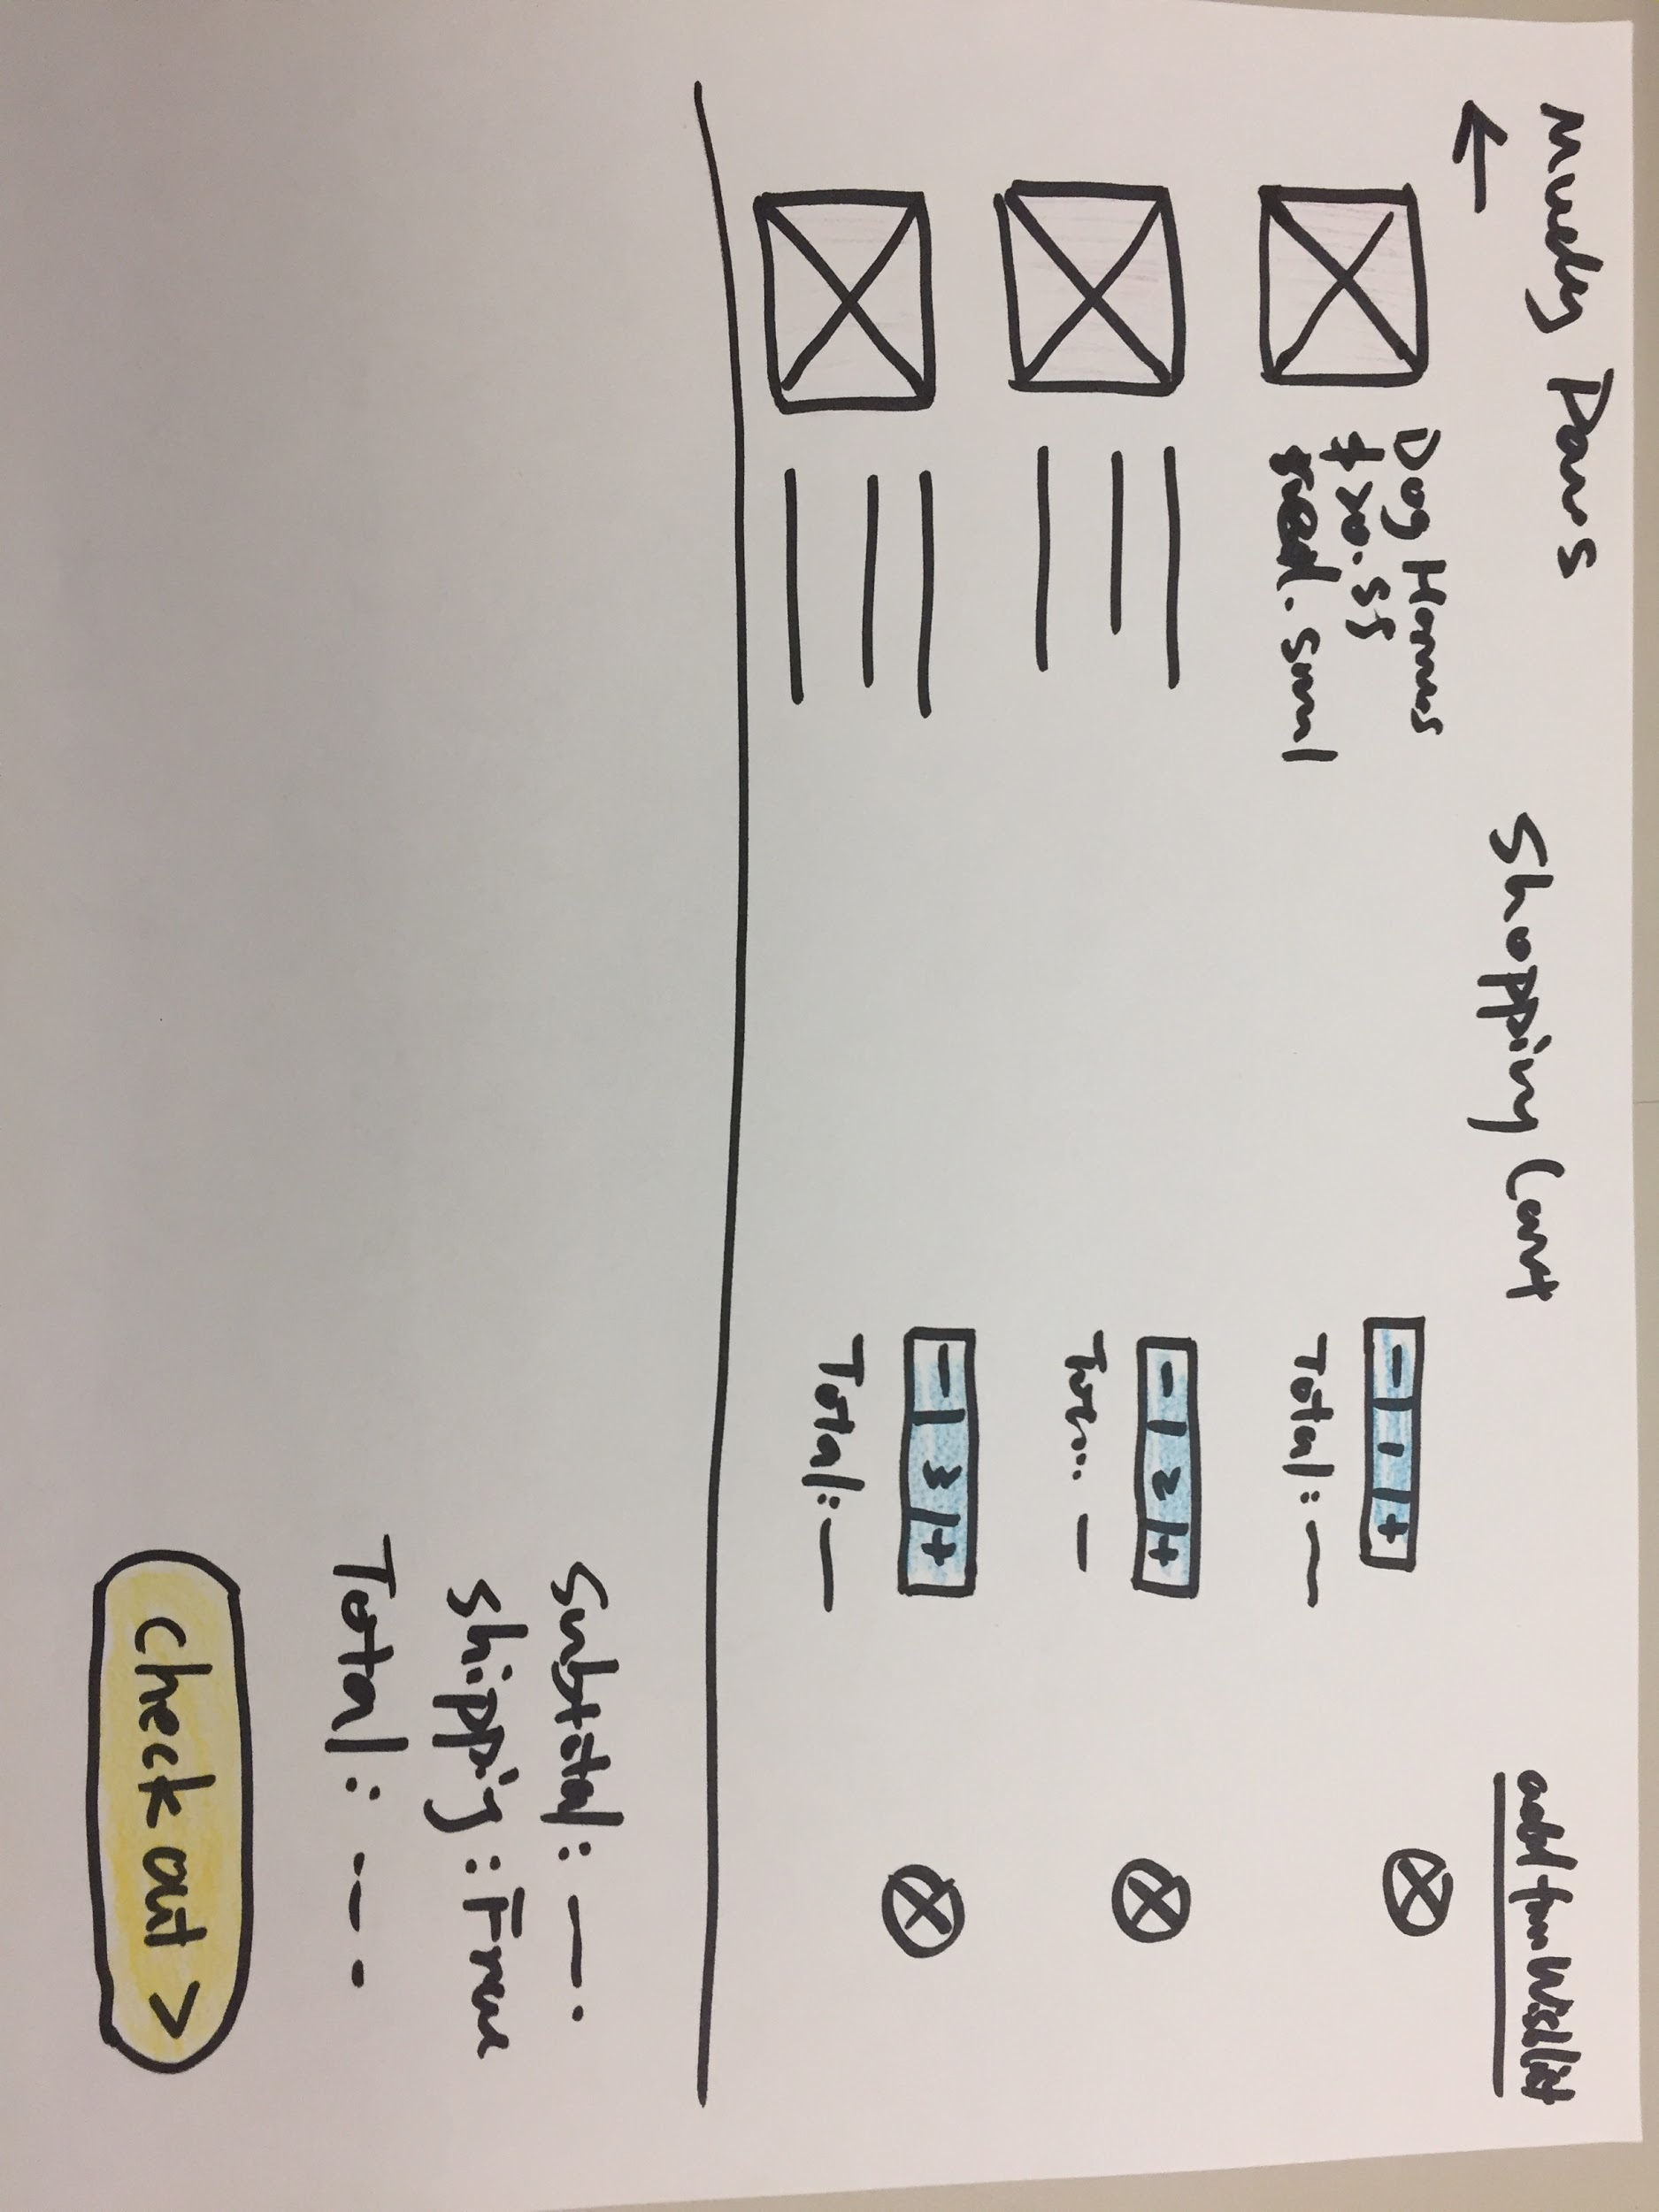 Muddy Paws
←
Shopping Cart
add from Wishlist
Dog Harness
red. small
- 1 +
Total:
- 2 +
- 3 +
Total:
Subtotal:
Shipping: Free
Total:
Check out >